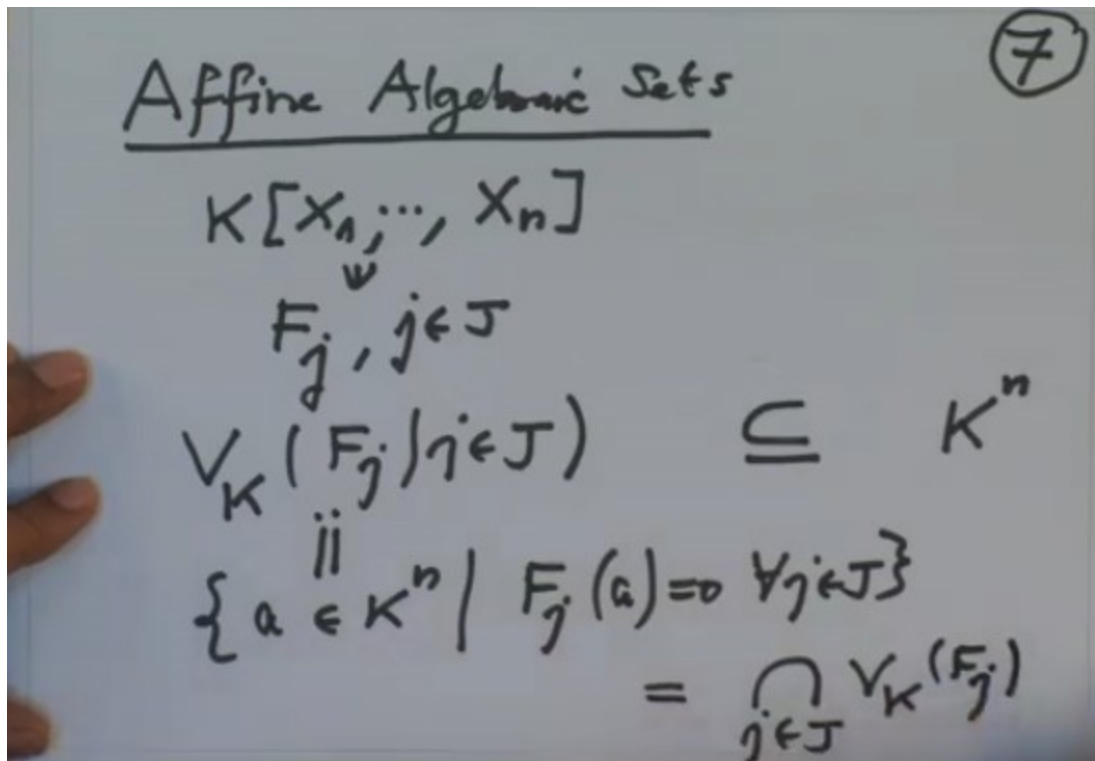 7
Affine Algebraic Sets
K[X₁, ..., Xₙ]
∈
F_j, j∈J
V_K (F_j | j∈J) ⊆ Kⁿ
:=
{a ∈ Kⁿ | F_j (a)=0 ∀j∈J}
= ⋂_{j∈J} V_K (F_j)